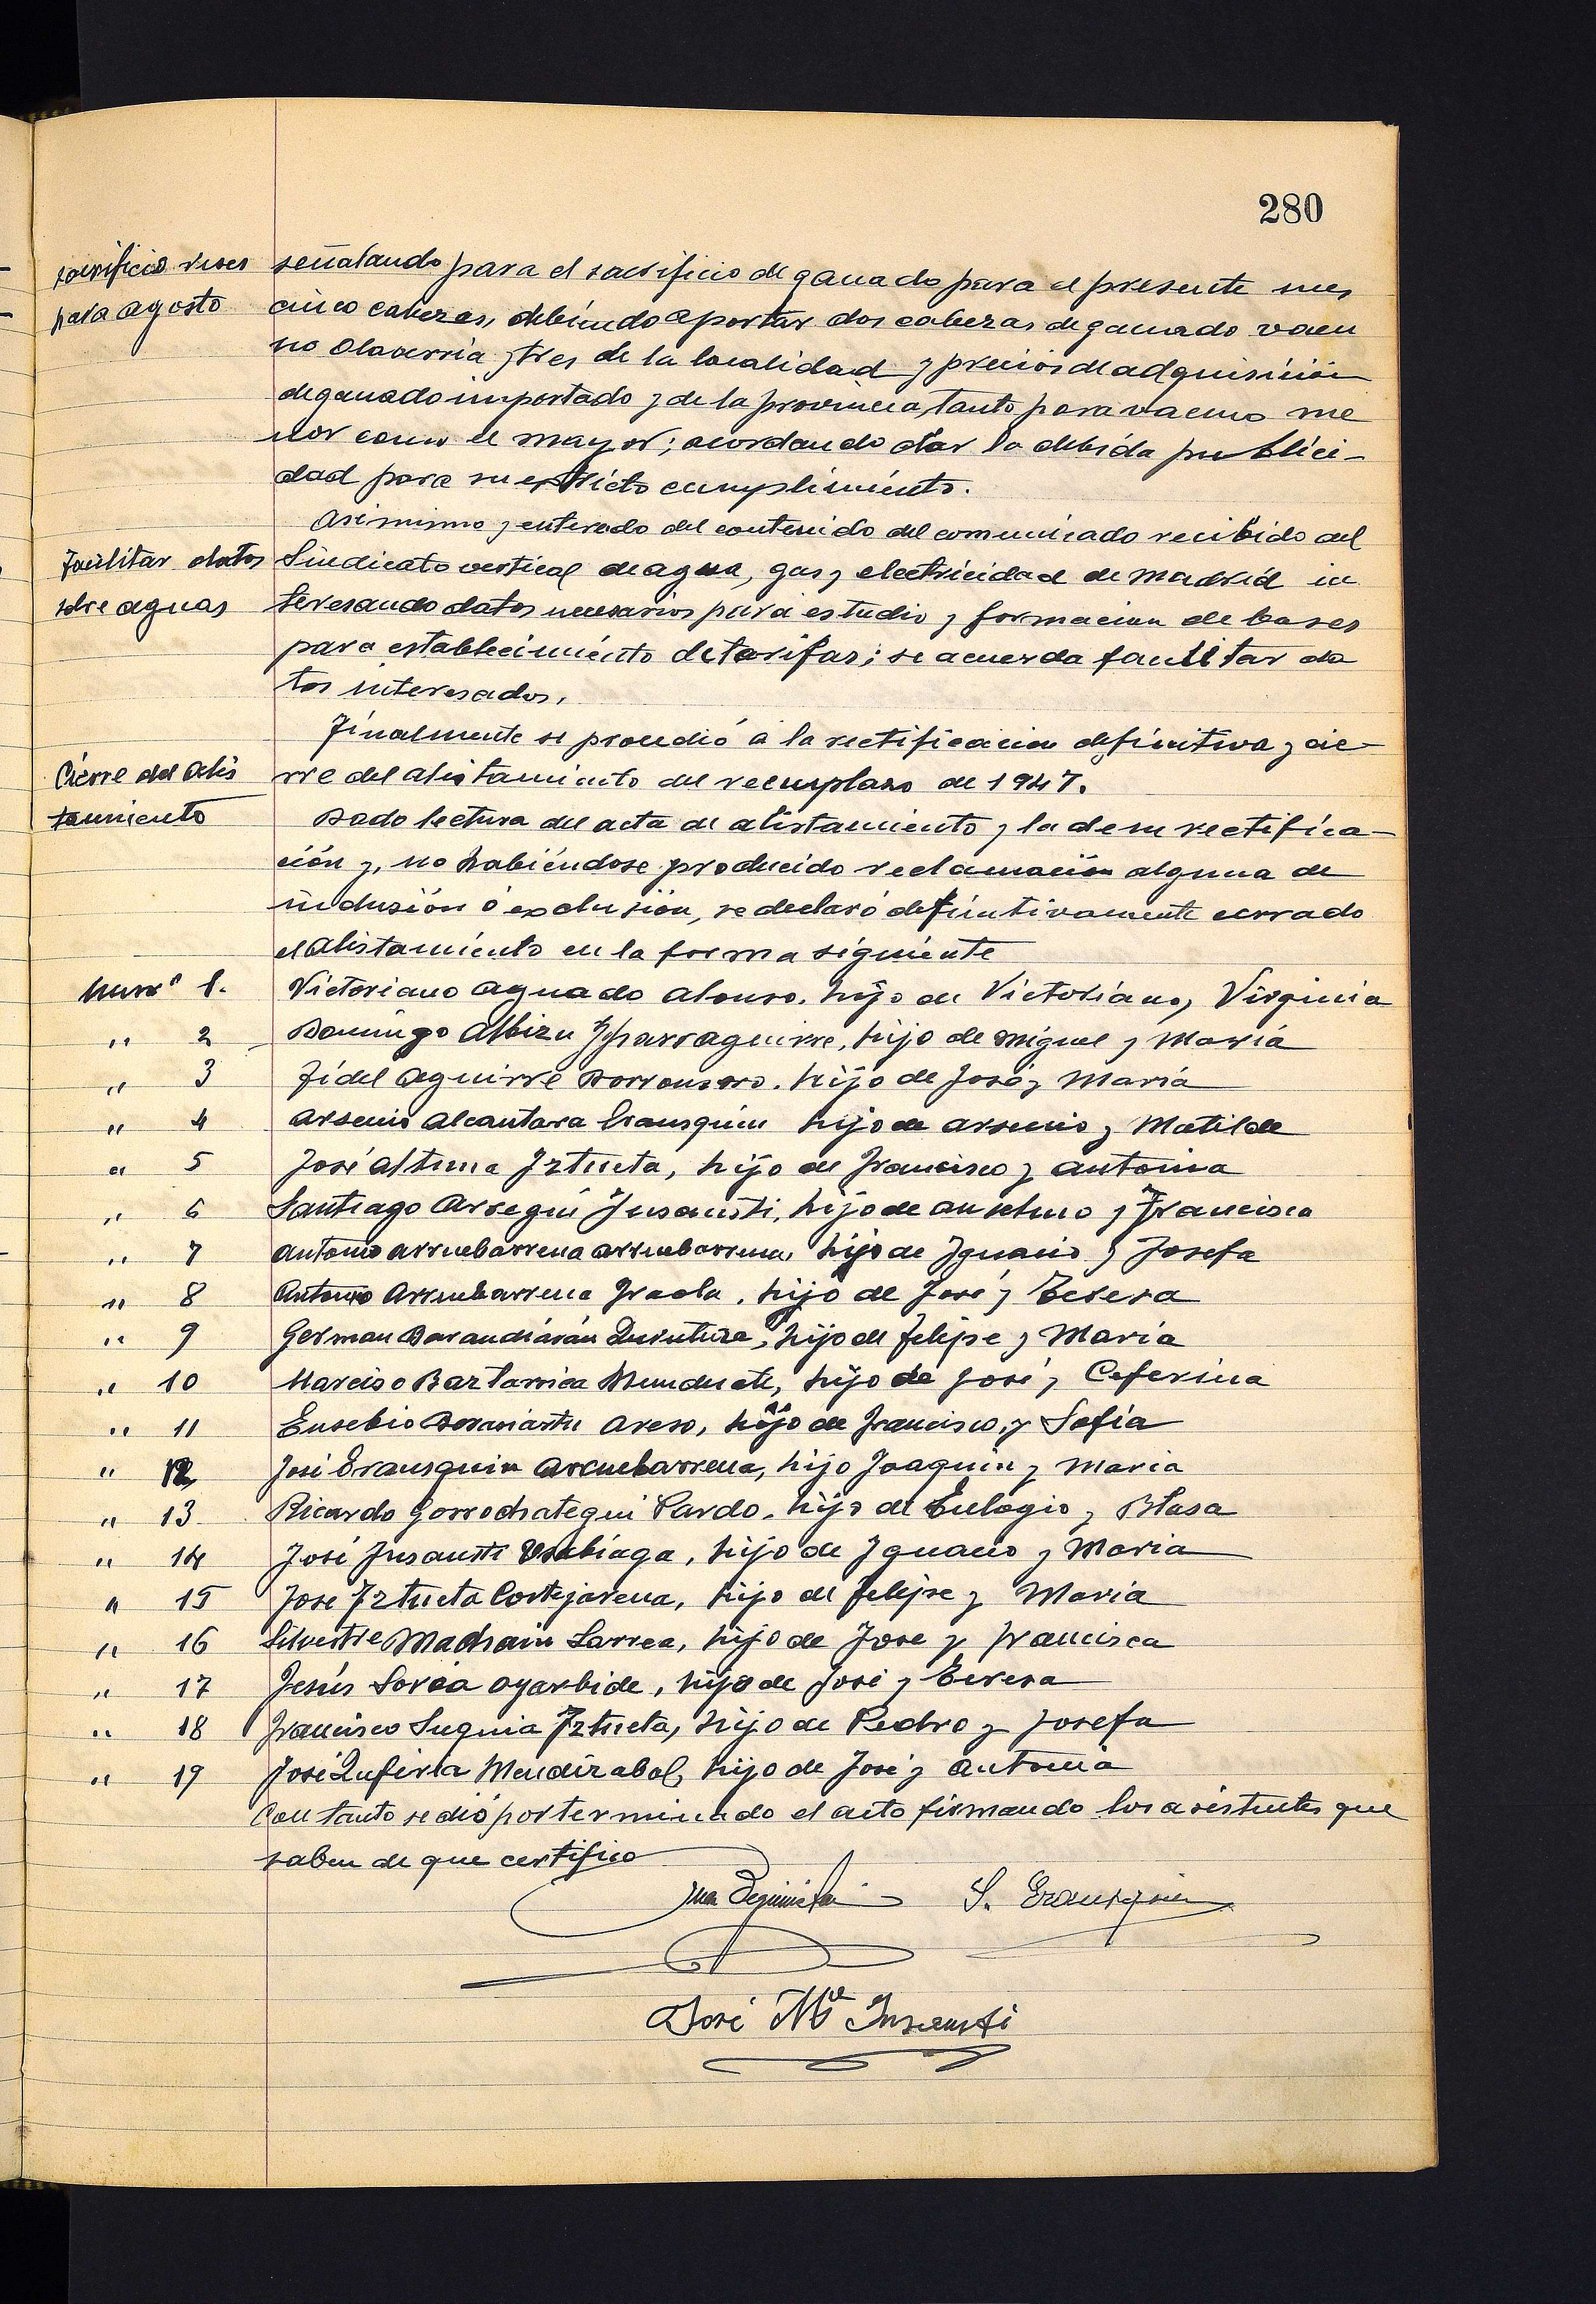 280
sacrificio reses
para agosto
señalando para el sacrificio de ganado para el presente mes
cinco cabezas, debiendo aportar dos cabezas de ganado vacu
no Olaverria y tres de la localidad y precios de adquisición
de ganado importado y de la provincia, tanto para vacuno me
nor como el mayor; acordando dar la debida publici-
dad para su estricto cumplimiento.
Asimismo y enterado del contenido del comunicado recibido del
Facilitar datos
sobre aguas
Sindicato vertical de agua, gas y electricidad de Madrid in
teresando datos necesarios para estudio y formacion de bases
para establecimiento de tarifas; se acuerda facilitar da
tos interesados.
Finalmente se procedió a la rectificacion definitiva y cie-
Cierre del alis
tamiento
rre del alistamiento del reemplazo de 1947.
Dado lectura del acta de alistamiento y la de su rectifica-
ción y, no habiéndose producido reclamación alguna de
inclusión ó exclusión, se declaró definitivamente cerrado
el alistamiento en la forma siguiente
Numº 1. Victoriano Aguado Alonso. hijo de Victoriano y Virginia
" 2 Domingo Albizu Yparraguirre, hijo de Miguel y Maria
" 3 Fidel Aguirre Dorronsoro. hijo de José y Maria
" 4 Arsenio Alcantara Erausquin hijo de Arsenio y Matilde
" 5 José Altuna Iztueta, hijo de Francisco y Antonia
" 6 Santiago Arregui Insausti, hijo de Anselmo y Francisca
" 7 Antonio Arruebarrena Arruebarrena, hijo de Ignacio y Josefa
" 8 Antonio Arruebarrena Iraola, hijo de José y Teresa
" 9 German Barandiarán, hijo de Felipe y Maria
" 10 Narciso Baztarrica Munduate, hijo de José y Ceferina
" 11 Eusebio Berasiartu Areso, hijo de Francisco, y Sofia
" 12 José Erausquin Arruebarrena, hijo Joaquin y Maria
" 13 Ricardo Gorrochategui Pardo. hijo de Eulogio y Blasa
" 14 José Insausti Usabiaga, hijo de Ignacio y Maria
" 15 José Iztueta Cortejarena, hijo de Felipe y Maria
" 16 Silvestre Machain Larrea, hijo de Jose y Francisca
" 17 Jesús Sorea Oyarbide, hijo de José y Teresa
" 18 Francisco Suquia Iztueta, hijo de Pedro y Josefa
" 19 José Zufiria Mendizabal, hijo de José y Antonia
Con tanto se dió por terminado el acto firmando los asistentes que
saben de que certifico
Juan S. Erausquin
José Mª Insausti